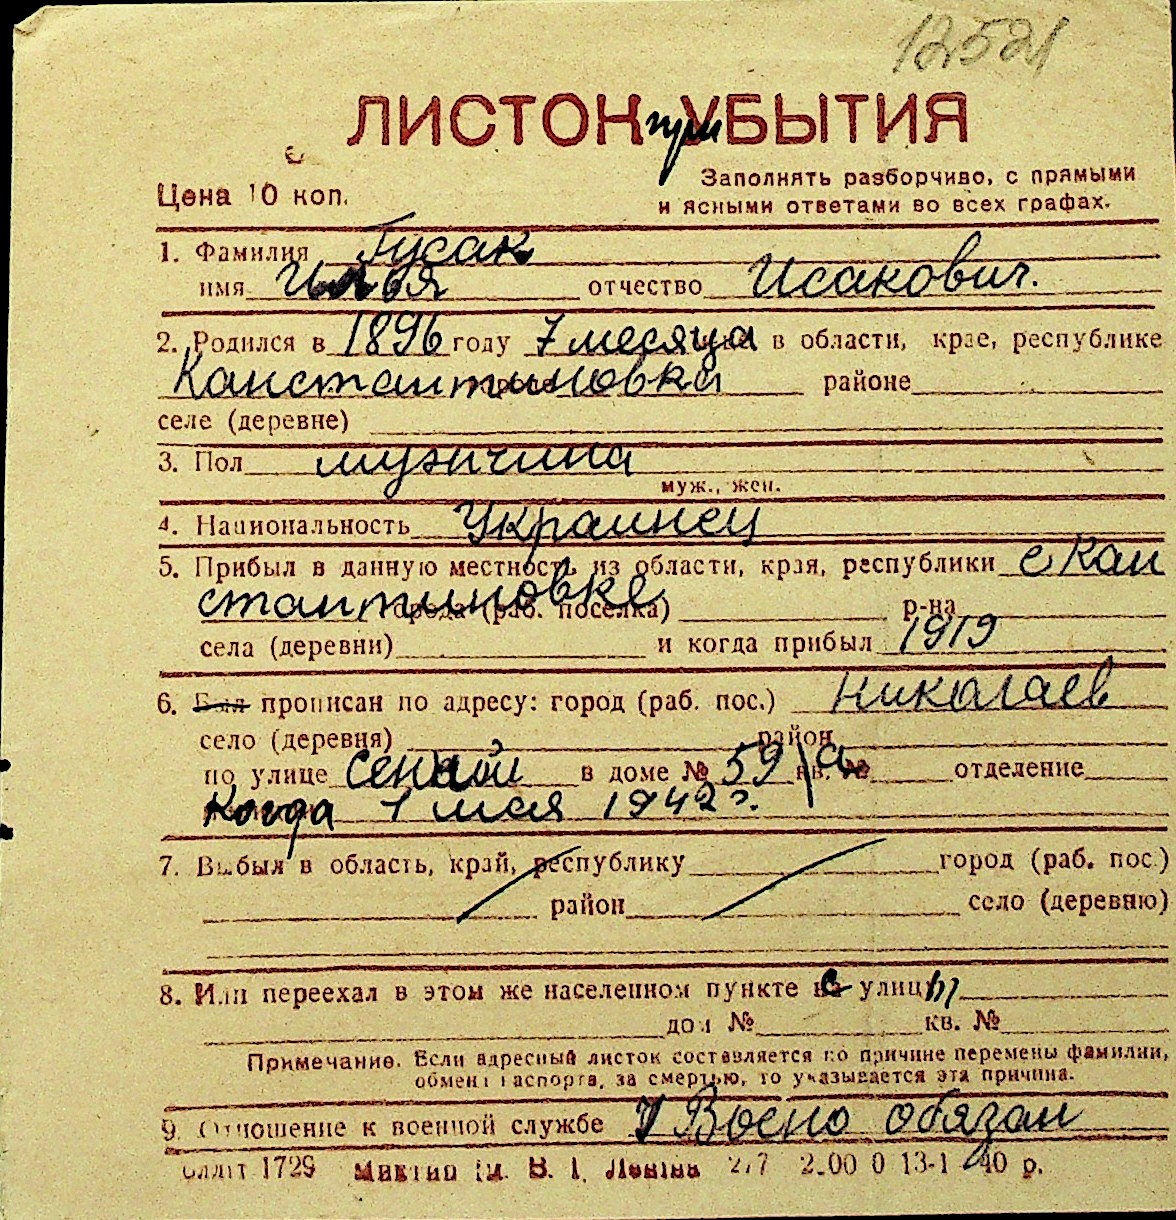 12521
ЛИСТОК при УБЫТИЯ
Цена 10 коп.
Заполнять разборчиво, с прямыми
и ясными ответами во всех графах.
1. Фамилия Гусак
имя Илья отчество Исакович.
2. Родился в 1896 году 7 месяца в области, крае, республике
Канстантиновка районе
селе (деревне)
3. Пол музичина
муж., жен.
4. Национальность Украинец
5. Прибыл в данную местность из области, края, республики с Кан
стантиновке города (раб. поселка) р-на
села (деревни) и когда прибыл 1919
6. Был прописан по адресу: город (раб. пос.) Николаев
село (деревня) район
по улице сенной в доме № 59/а кв. № отделение
Когда 1 мая 1942 г.
7. Выбыл в область, край, республику город (раб. пос.)
район село (деревню)
8. Или переехал в этом же населенном пункте с улицы
дом № кв. №
Примечание. Если адресный листок составляется по причине перемены фамилии,
обмена паспорта, за смертью, то указывается эта причина.
9. Отношение к военной службе Воено обязан
1729 В. І. Леніна 2.00 0 13-1 40 р.